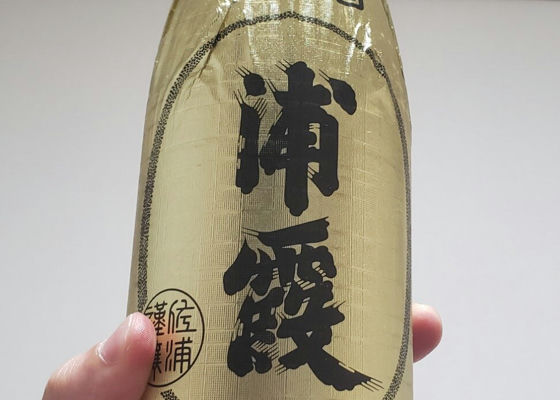 浦霞
佐浦
謹醸